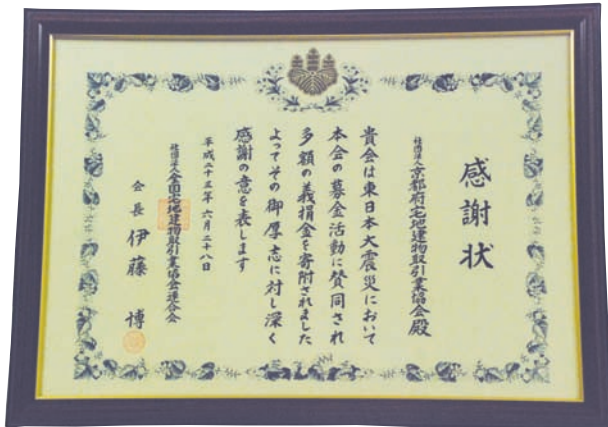 感謝状
社団法人京都府宅地建物取引業協会殿
貴会は東日本大震災において
本会の募金活動に賛同され
多額の義捐金を寄附されました
よってその御厚志に対し深く
感謝の意を表します
平成二十三年六月二十八日
社団法人全国宅地建物取引業協会連合会
会長 伊藤 博